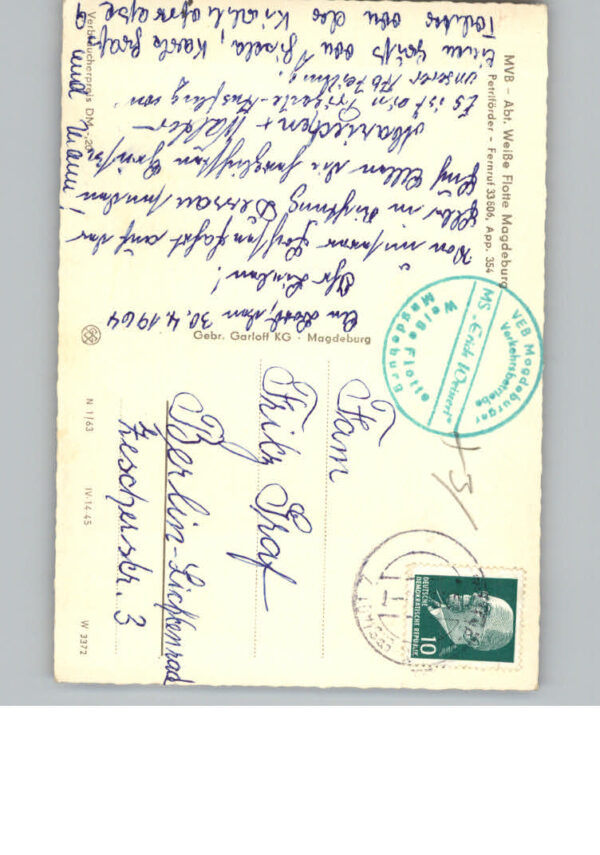 MVB - Abt. Weiße Flotte Magdeburg
Petriförder - Fernruf 33606, App. 354
An Bord, den 30.4.1964
Ihr Lieben!
Von unserer Schiffahrt auf der
Elbe in Richtung Dessau senden
Euch Allen die herzlichsten Grüße
Mariechen + Walter
Es ist ein Brigade-Ausflug von
unserer Abteilung.
Einen Gruß von Gisela,
Tochter von der
und Mann!
Verbraucherpreis DM -,20
Gebr. Garloff KG · Magdeburg
VEB Magdeburger
Verkehrsbetriebe
MS „Erich Weinert"
Weiße Flotte
Magdeburg
DEUTSCHE
DEMOKRATISCHE REPUBLIK
10
Fam
Fritz Graf
Berlin-Lichtenrad
Zescherstr. 3
N 1/63
IV-14-45
W 3372